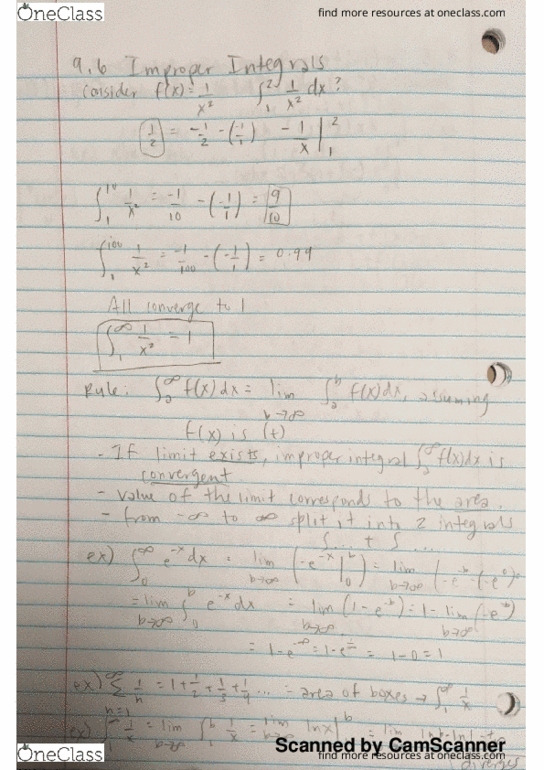 OneClass
find more resources at oneclass.com
9.6 Improper Integrals
Consider f(x) = 1/x² ∫₁² 1/x² dx?
1/2 = -1/2 - (-1/1) -1/x |₁²
∫₁¹⁰ 1/x² = -1/10 - (-1/1) = 9/10
∫₁¹⁰⁰ 1/x² = -1/100 - (-1/1) = 0.99
All converge to 1
∫₁^∞ 1/x² = 1
Rule: ∫ₐ^∞ f(x)dx = lim b→∞ ∫ₐᵇ f(x)dx, assuming
f(x) is (+)
- If limit exists, improper integral ∫ₐ^∞ f(x)dx is
convergent
- value of the limit corresponds to the area.
- from -∞ to ∞ split it into 2 integrals
∫... + ∫...
ex) ∫₀^∞ e^-x dx = lim b→∞ (-e^-x |₀ᵇ) = lim b→∞ (-e^-b - (-e^0))
= lim b→∞ ∫₀ᵇ e^-x dx = lim b→∞ (1-e^-b) = 1 - lim b→∞ (-e^b)
= 1-e^-∞ = 1-e = 1-0 = 1
ex) ∞ Σ n=1 1/n = 1 + 1/2 + 1/3 + 1/4 ... = area of boxes → ∫₁^∞ 1/x
ex) ∫ 1/x = lim b→∞ ∫₁ᵇ 1/x = lim ln x | ᵇ = lim
diverges
Scanned by CamScanner
OneClass
find more resources at oneclass.com